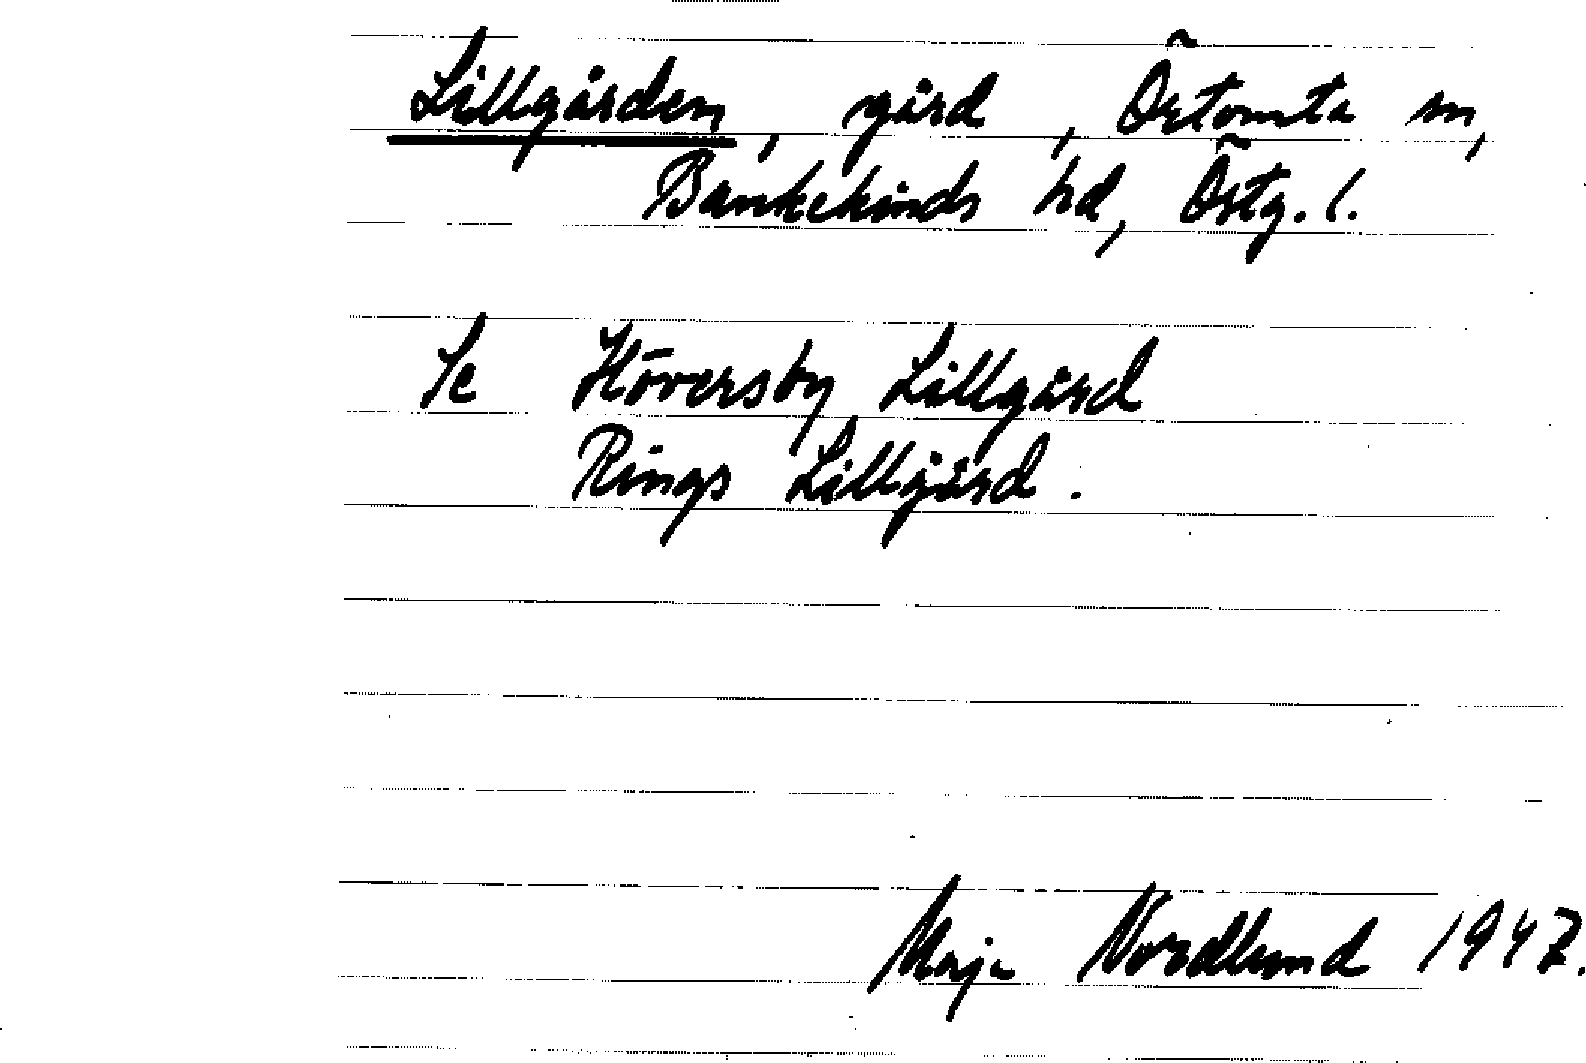 Lillgården, gård, Östomta sn,
Bankekinds hd, Östg. l.
Se Höversby Lillgård
Rings Lillgård.
Maja Nordlund 1947.